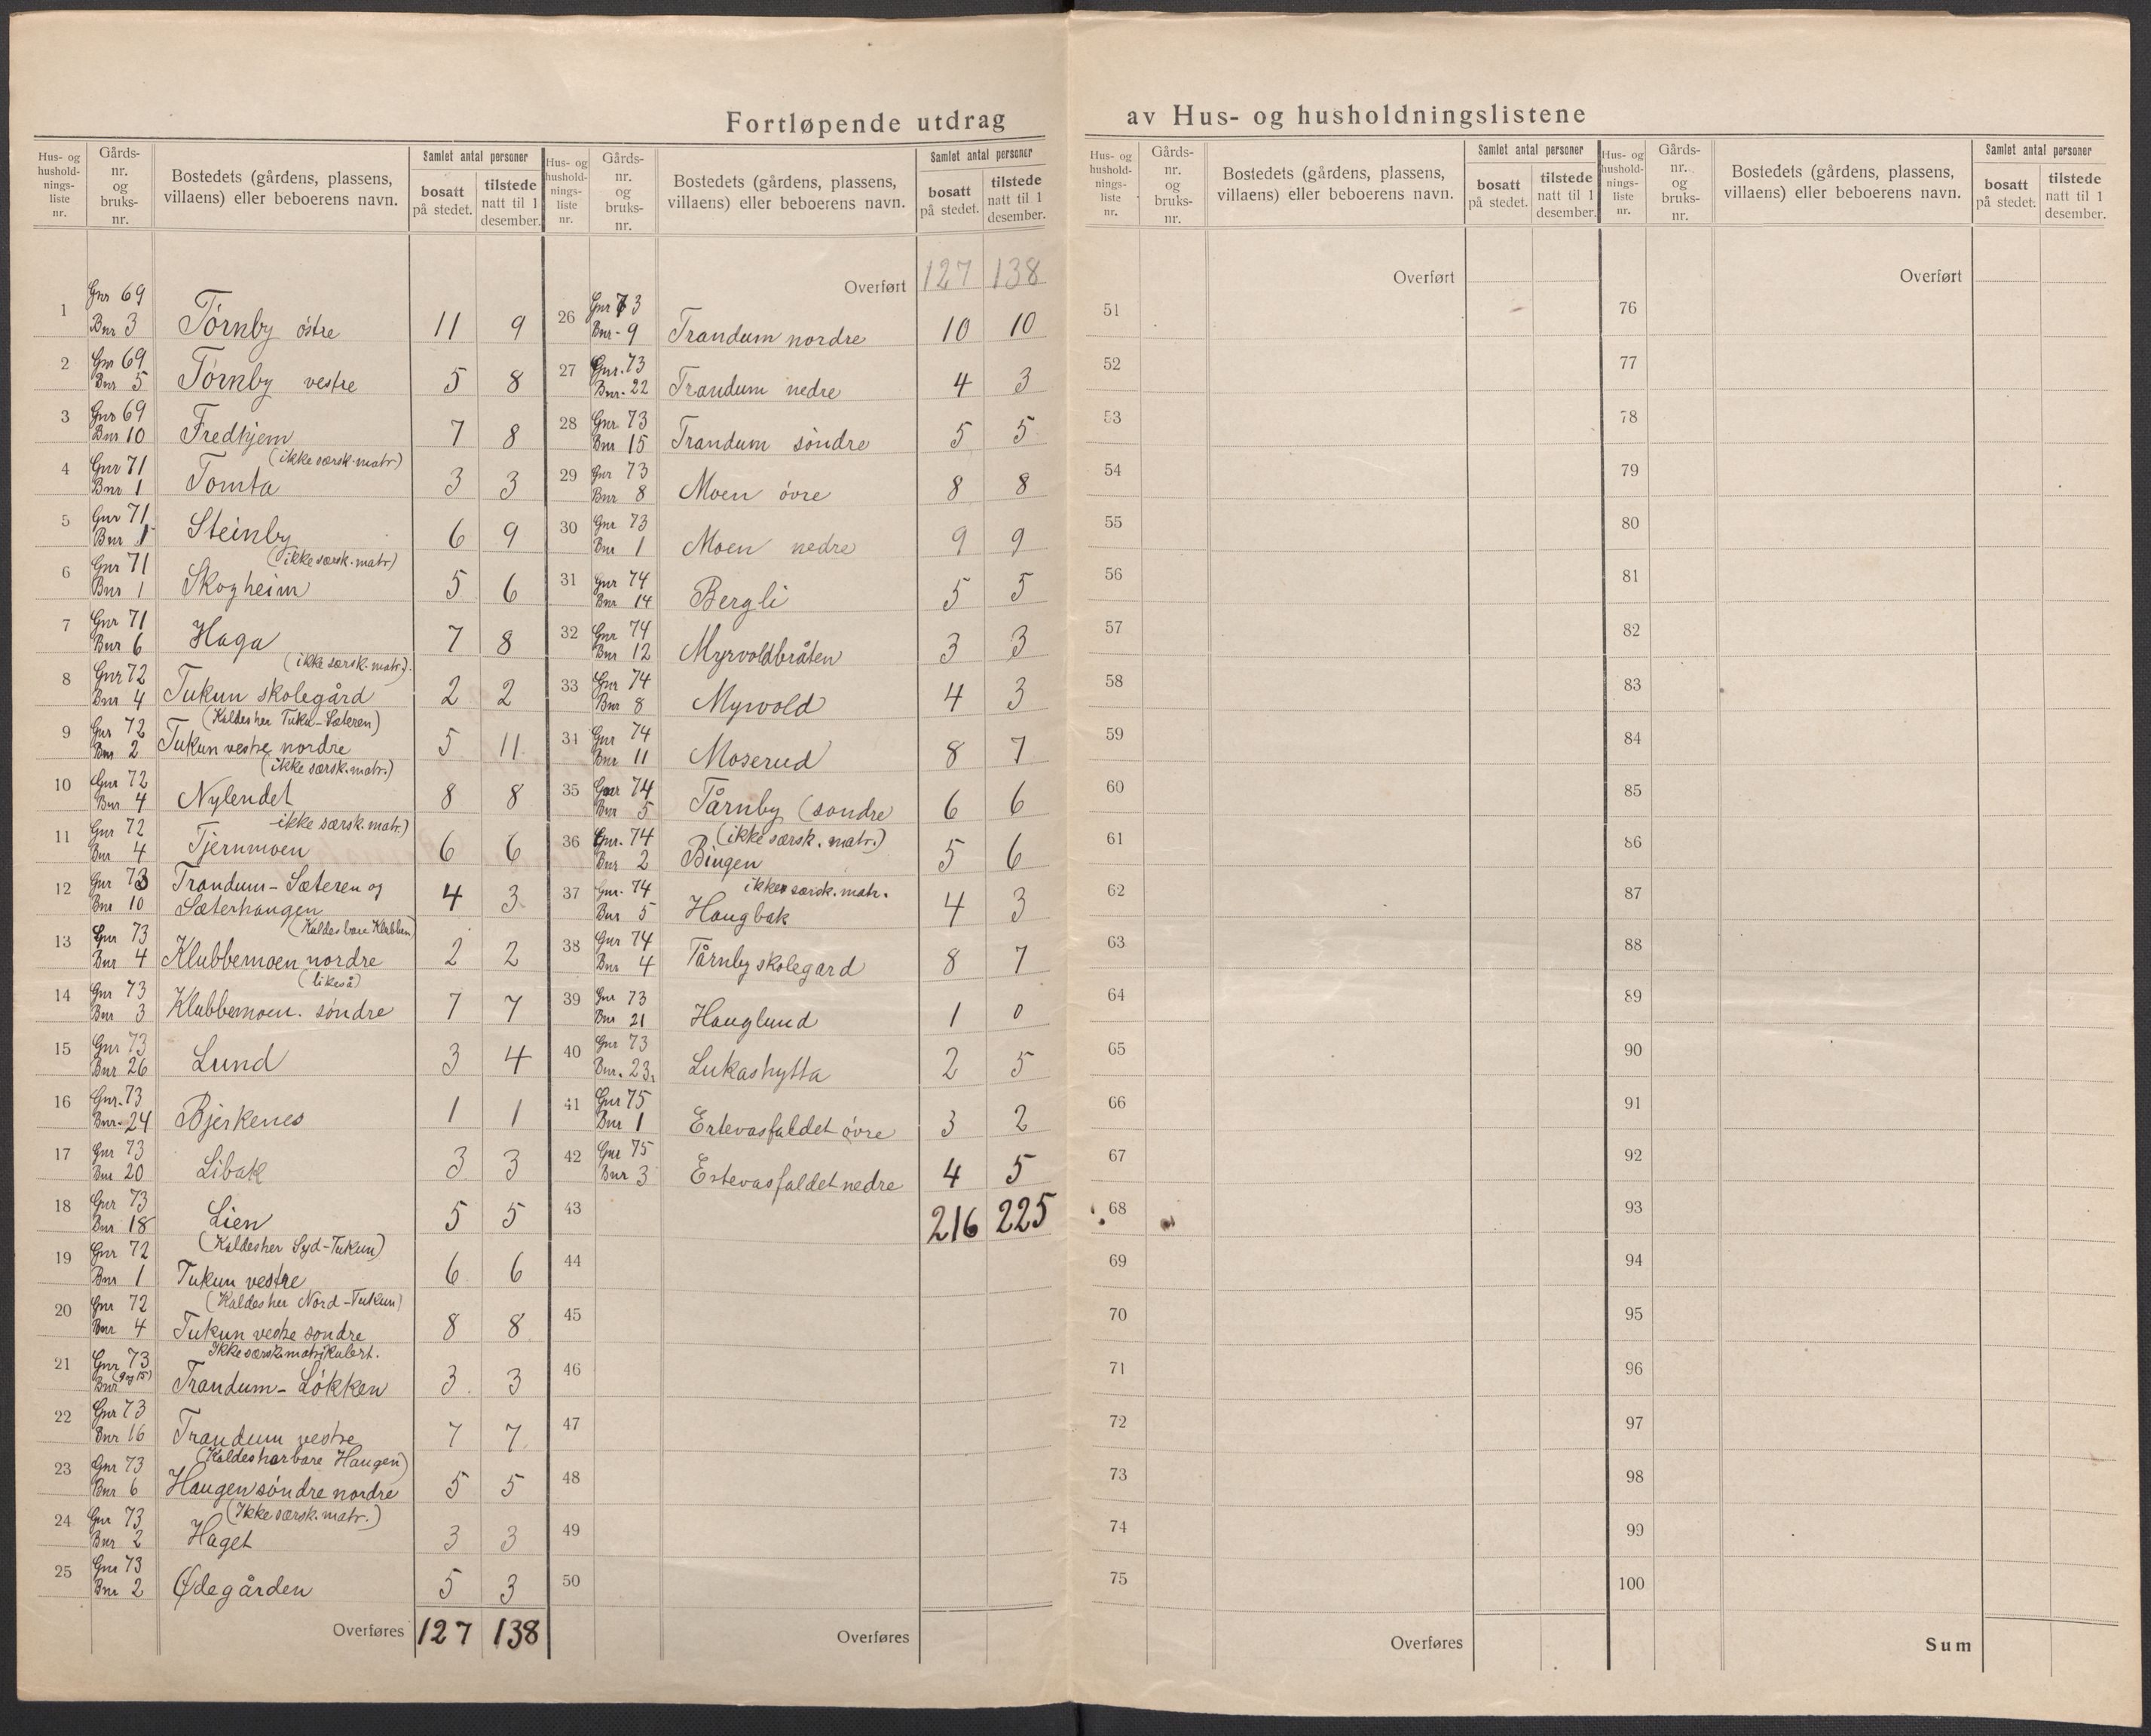 Fortløpende utdrag av Hus- og husholdningslistene
Hus- og hushold-nings-liste nr. Gårds-nr. og bruks-nr. Bostedets (gårdens, plassens, villaens) eller beboerens navn. Samlet antal personer bosatt på stedet. tilstede natt til 1 desember.
1 Gnr 69 Bnr 3 Tørnby østre 11 9
2 Gnr 69 Bnr 5 Tørnby vestre 5 8
3 Gnr 69 Bnr 10 Fredhjem 7 8
(ikke særsk. matr)
4 Gnr 71 Bnr 1 Tomta 3 3
5 Gnr 71 Bnr 1 Steinby 6 9
(ikke særsk. matr)
6 Gnr 71 Bnr 1 Skogheim 5 6
7 Gnr 71 Bnr 6 Haga 7 8
(ikke særsk. matr.)
8 Gnr 72 Bnr 4 Tukun skolegård 2 2
(Kaldes her Tuku-Sæteren)
9 Gnr 72 Bnr 2 Tukun vestre nordre 5 11
(ikke særsk. matr.)
10 Gnr 72 Bnr 4 Nylendet 8 8
ikke særsk. matr.)
11 Gnr 72 Bnr 4 Tjernmoen 6 6
12 Gnr 73 Bnr 10 Trandum-Sæteren og
Sæterhaugen 4 3
(Kaldes bare Klubben)
13 Gnr 73 Bnr 4 Klubbemoen nordre 2 2
(likeså)
14 Gnr 73 Bnr 3 Klubbemoen. søndre 7 7
15 Gnr 73 Bnr 26 Lund 3 4
16 Gnr. 73 Bnr. 24 Bjerkenes 1 1
17 Gnr 73 Bnr 20 Libak 3 3
18 Gnr 73 Bnr 18 Lien 5 5
(Kaldes her Syd-Tukun)
19 Gnr 72 Bnr 1 Tukun vestre 6 6
(Kaldes her Nord-Tukun)
20 Gnr 72 Bnr 4 Tukun vestre søndre 8 8
Ikke særsk. matrikulert.
21 Gnr 73 Bnr (9 og 15) Trandum-Løkken 3 3
22 Gnr 73 Bnr 16 Trandum vestre 7 7
(Kaldes har bare Haugen)
23 Gnr 73 Bnr 6 Haugen søndre nordre 5 5
(Ikke særsk. matr.)
24 Gnr 73 Bnr 2 Haget 3 3
25 Gnr 73 Bnr 2 Ødegården 5 3
Overføres 127 138
Hus- og hushold-nings-liste nr. Gårds-nr. og bruks-nr. Bostedets (gårdens, plassens, villaens) eller beboerens navn. Samlet antal personer bosatt på stedet. tilstede natt til 1 desember.
Overført 127 138
26 Gnr 73 Bnr- 9 Trandum nordre 10 10
27 Gnr. 73 Bnr. 22 Trandum nedre 4 3
28 Gnr. 73 Bnr 15 Trandum søndre 5 5
29 Gnr 73 Bnr 8 Moen øvre 8 8
30 Gnr 73 Bnr 1 Moen nedre 9 9
31 Gnr 74 Bnr 14 Bergli 5 5
32 Gnr 74 Bnr 12 Myrvoldbråten 3 3
33 Gnr 74 Bnr 8 Myrvold 4 3
34 Gnr 74 Bnr 11 Moserud 8 7
35 Gnr 74 Bnr 5 Tårnby (søndre 6 6
(ikke særsk. matr.)
36 Gnr. 74 Bnr 2 Bingen 5 6
ikke særsk. matr.
37 Gnr. 74 Bnr 5 Haugbak 4 3
38 Gnr 74 Bnr 4 Tårnby skolegård 8 7
39 Gnr 73 Bnr 21 Hauglund 1 0
40 Gnr 73 Bnr. 23. Lukashytta 2 5
41 Gnr 75 Bnr 1 Ertevasfaldet øvre 3 2
42 Gnr 75 Bnr 3 Ertevasfaldet nedre 4 5
43 216 225
44
45
46
47
48
49
50
Overføres
Hus- og hushold-nings-liste nr. Gårds-nr. og bruks-nr. Bostedets (gårdens, plassens, villaens) eller beboerens navn. Samlet antal personer bosatt på stedet. tilstede natt til 1 desember.
Overført
51
52
53
54
55
56
57
58
59
60
61
62
63
64
65
66
67
68
69
70
71
72
73
74
75
Overføres
Hus- og hushold-nings-liste nr. Gårds-nr. og bruks-nr. Bostedets (gårdens, plassens, villaens) eller beboerens navn. Samlet antal personer bosatt på stedet. tilstede natt til 1 desember.
Overført
76
77
78
79
80
81
82
83
84
85
86
87
88
89
90
91
92
93
94
95
96
97
98
99
100
Sum